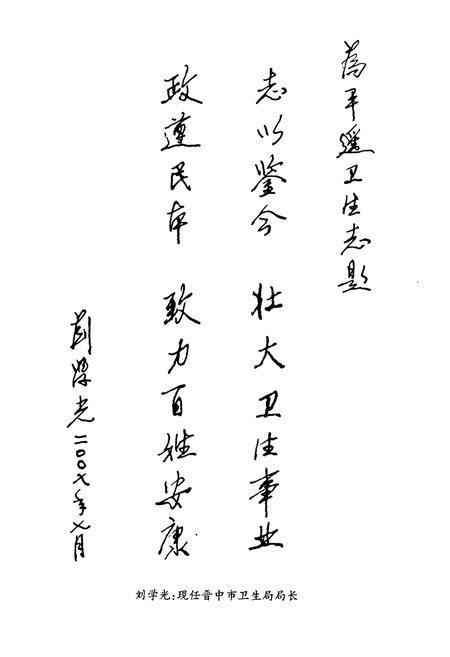 為平遥卫生志题
志以鉴今 壮大卫生事业
政遵民本 致力百姓安康
刘学光二〇〇七年七月
刘学光:现任晋中市卫生局局长